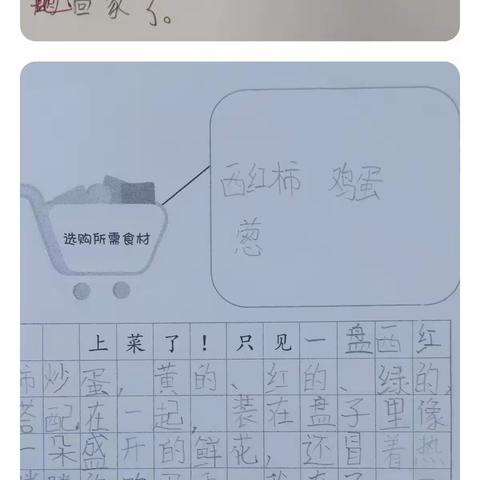 回家了。
西红柿 鸡蛋
葱
选购所需食材
上菜了！只见一盘西红
柿炒蛋，黄的、红的、绿的，
搭配在一起，装在盘子里像
一朵盛开的鲜花，还冒着热